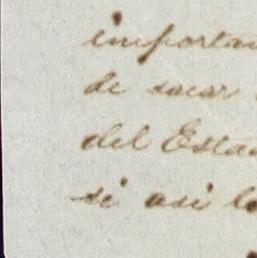 importan
de sacar
del Esta
si asi lo